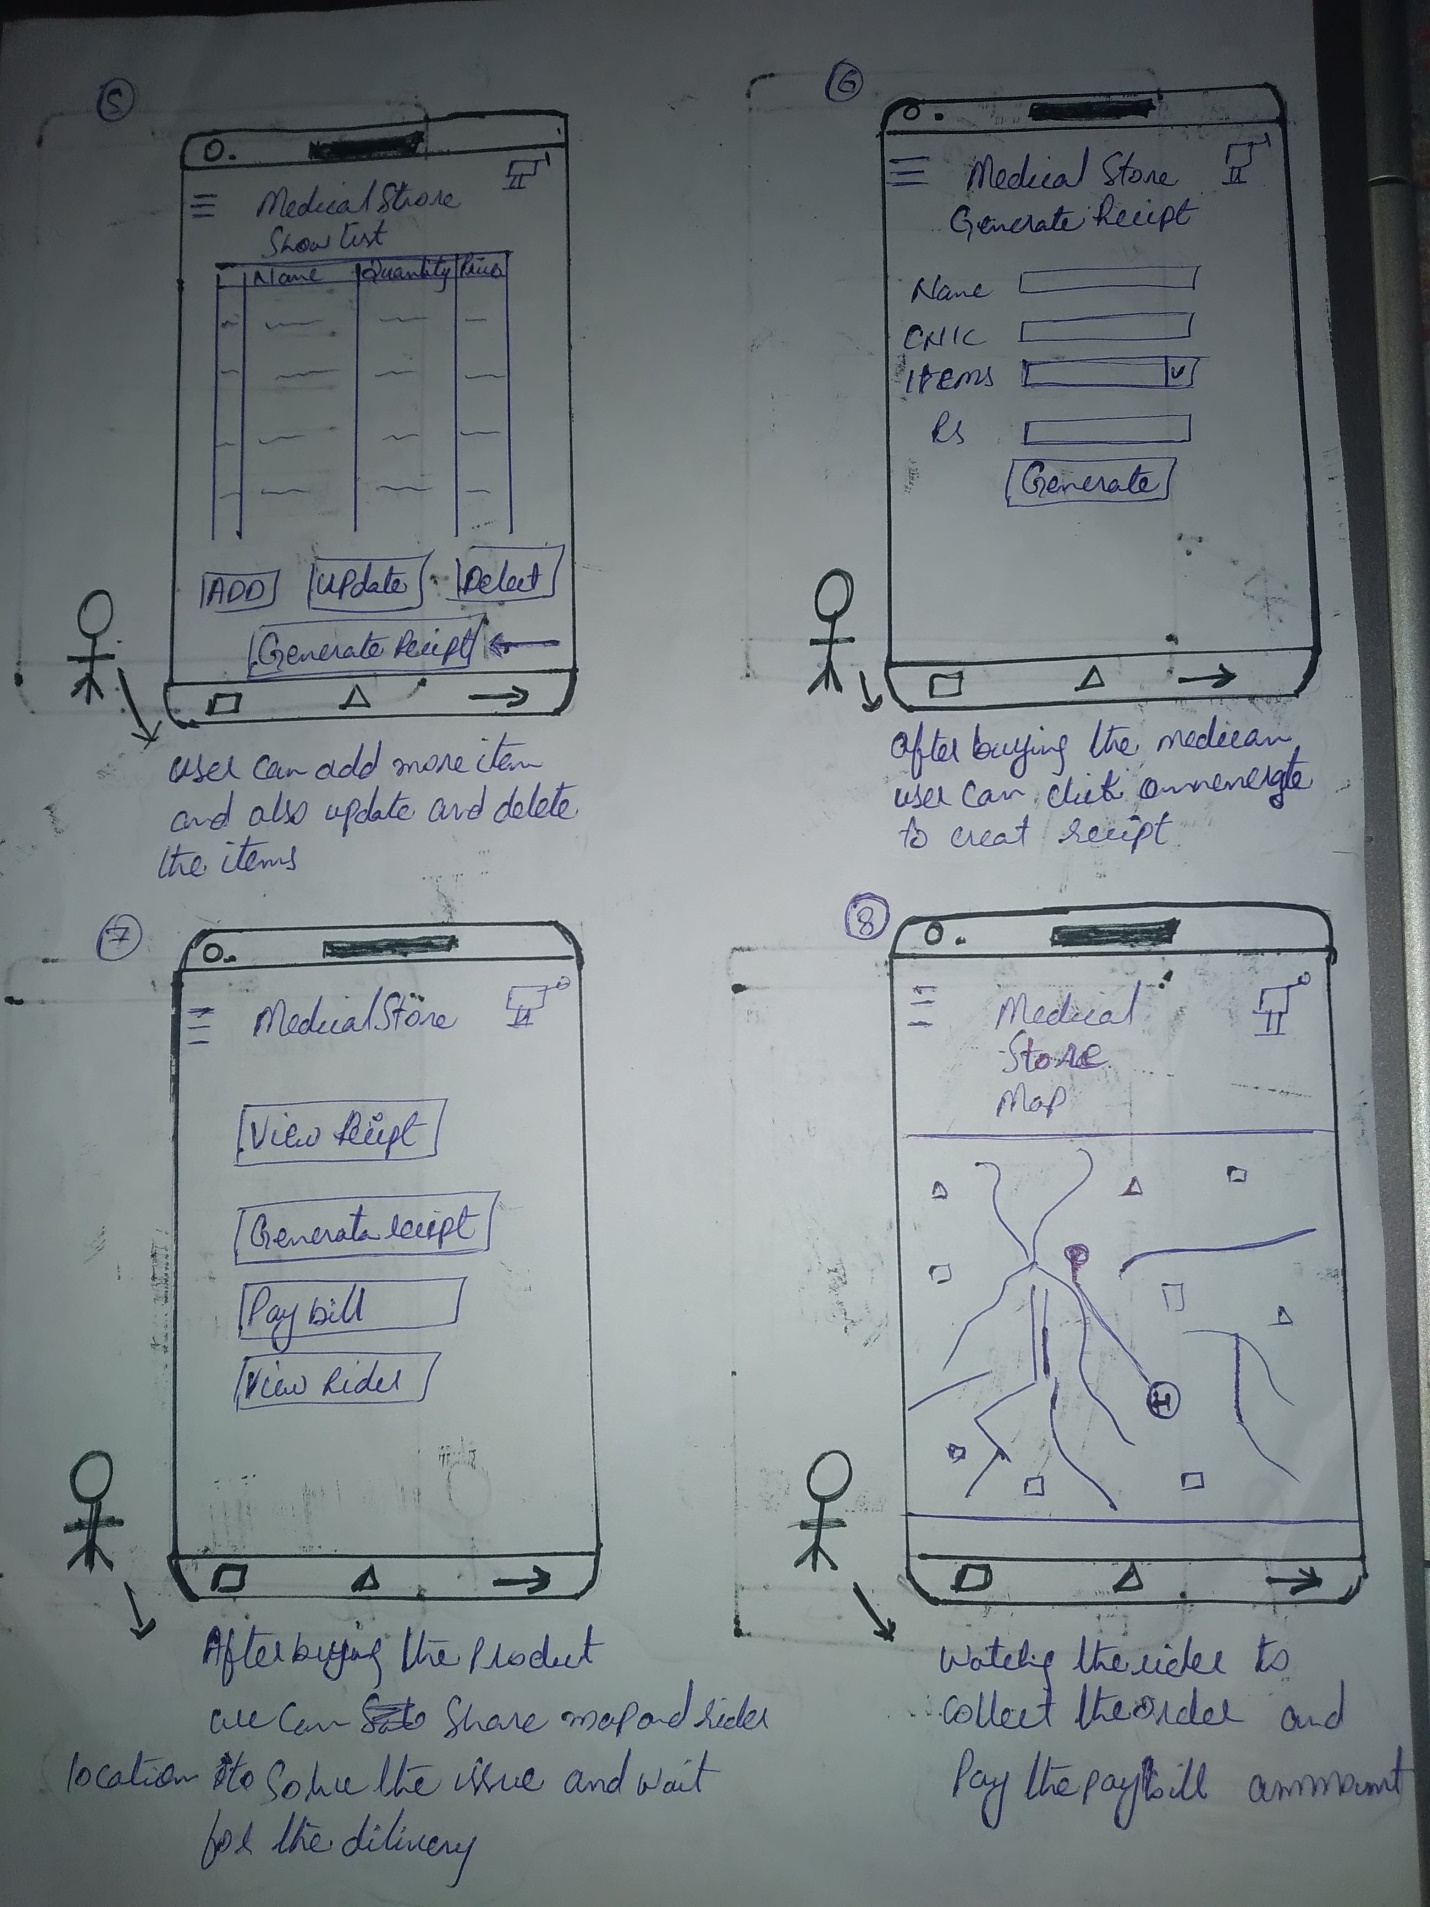 5
Medical Strore
Show list
Name Quantity Price
ADD Update Delect
Generate Recipt
user can add more item
and also update and delete
the items
6
Medical Store
Generate Recipt
Name
CNIC
ITEMS
Rs
Generate
after buying the medican
user can click on
to creat recipt
7
Medical Store
View Recipt
Generata recipt
Pay bill
View Rider
After buying the Product
we can share map and rider
location to solve the issue and wait
for the dilivery
8
Medical
Store
Map
H
watchig the rider to
collect the order and
Pay the paybill ammount